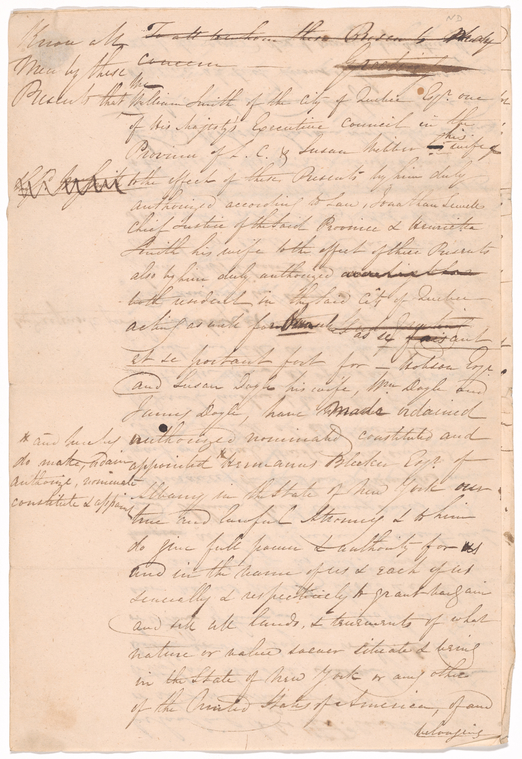 ND
Know All
Men by these
Presents that
To all to whom these Presents
concern
We
William Smith of the city of Quebec Esqr. one
of His Majesty's Executive Council in the
Province of L. C. & Susan Webber his wife
to the effect of these Presents by him duly
authorized according to Law, Jonathan Sewell
Chief Justice of the said Province & Henrietta
Smith his wife to the effect of these Presents
also by him duly authorized
both resident in the said City of Quebec
acting as well for
et se portant fort for — Robson Esqr
and Susan Doyle his wife, Wm Doyle and
James Doyle, have made ordained
authorized nominated constituted and
appointed Hermanus Bleeker Esqr of
Albany in the State of New York our
true and lawful Attorney & to him
do give full power & authority for us
and in the name of us & each of us
severally & respectively to grant bargain
and sell all lands, & tenements of what
nature or value soever situated & being
in the State of New York or any other
of the United States of America, of and
belonging
and by these
do make, ordain
authorize, nominate
constitute & appoint